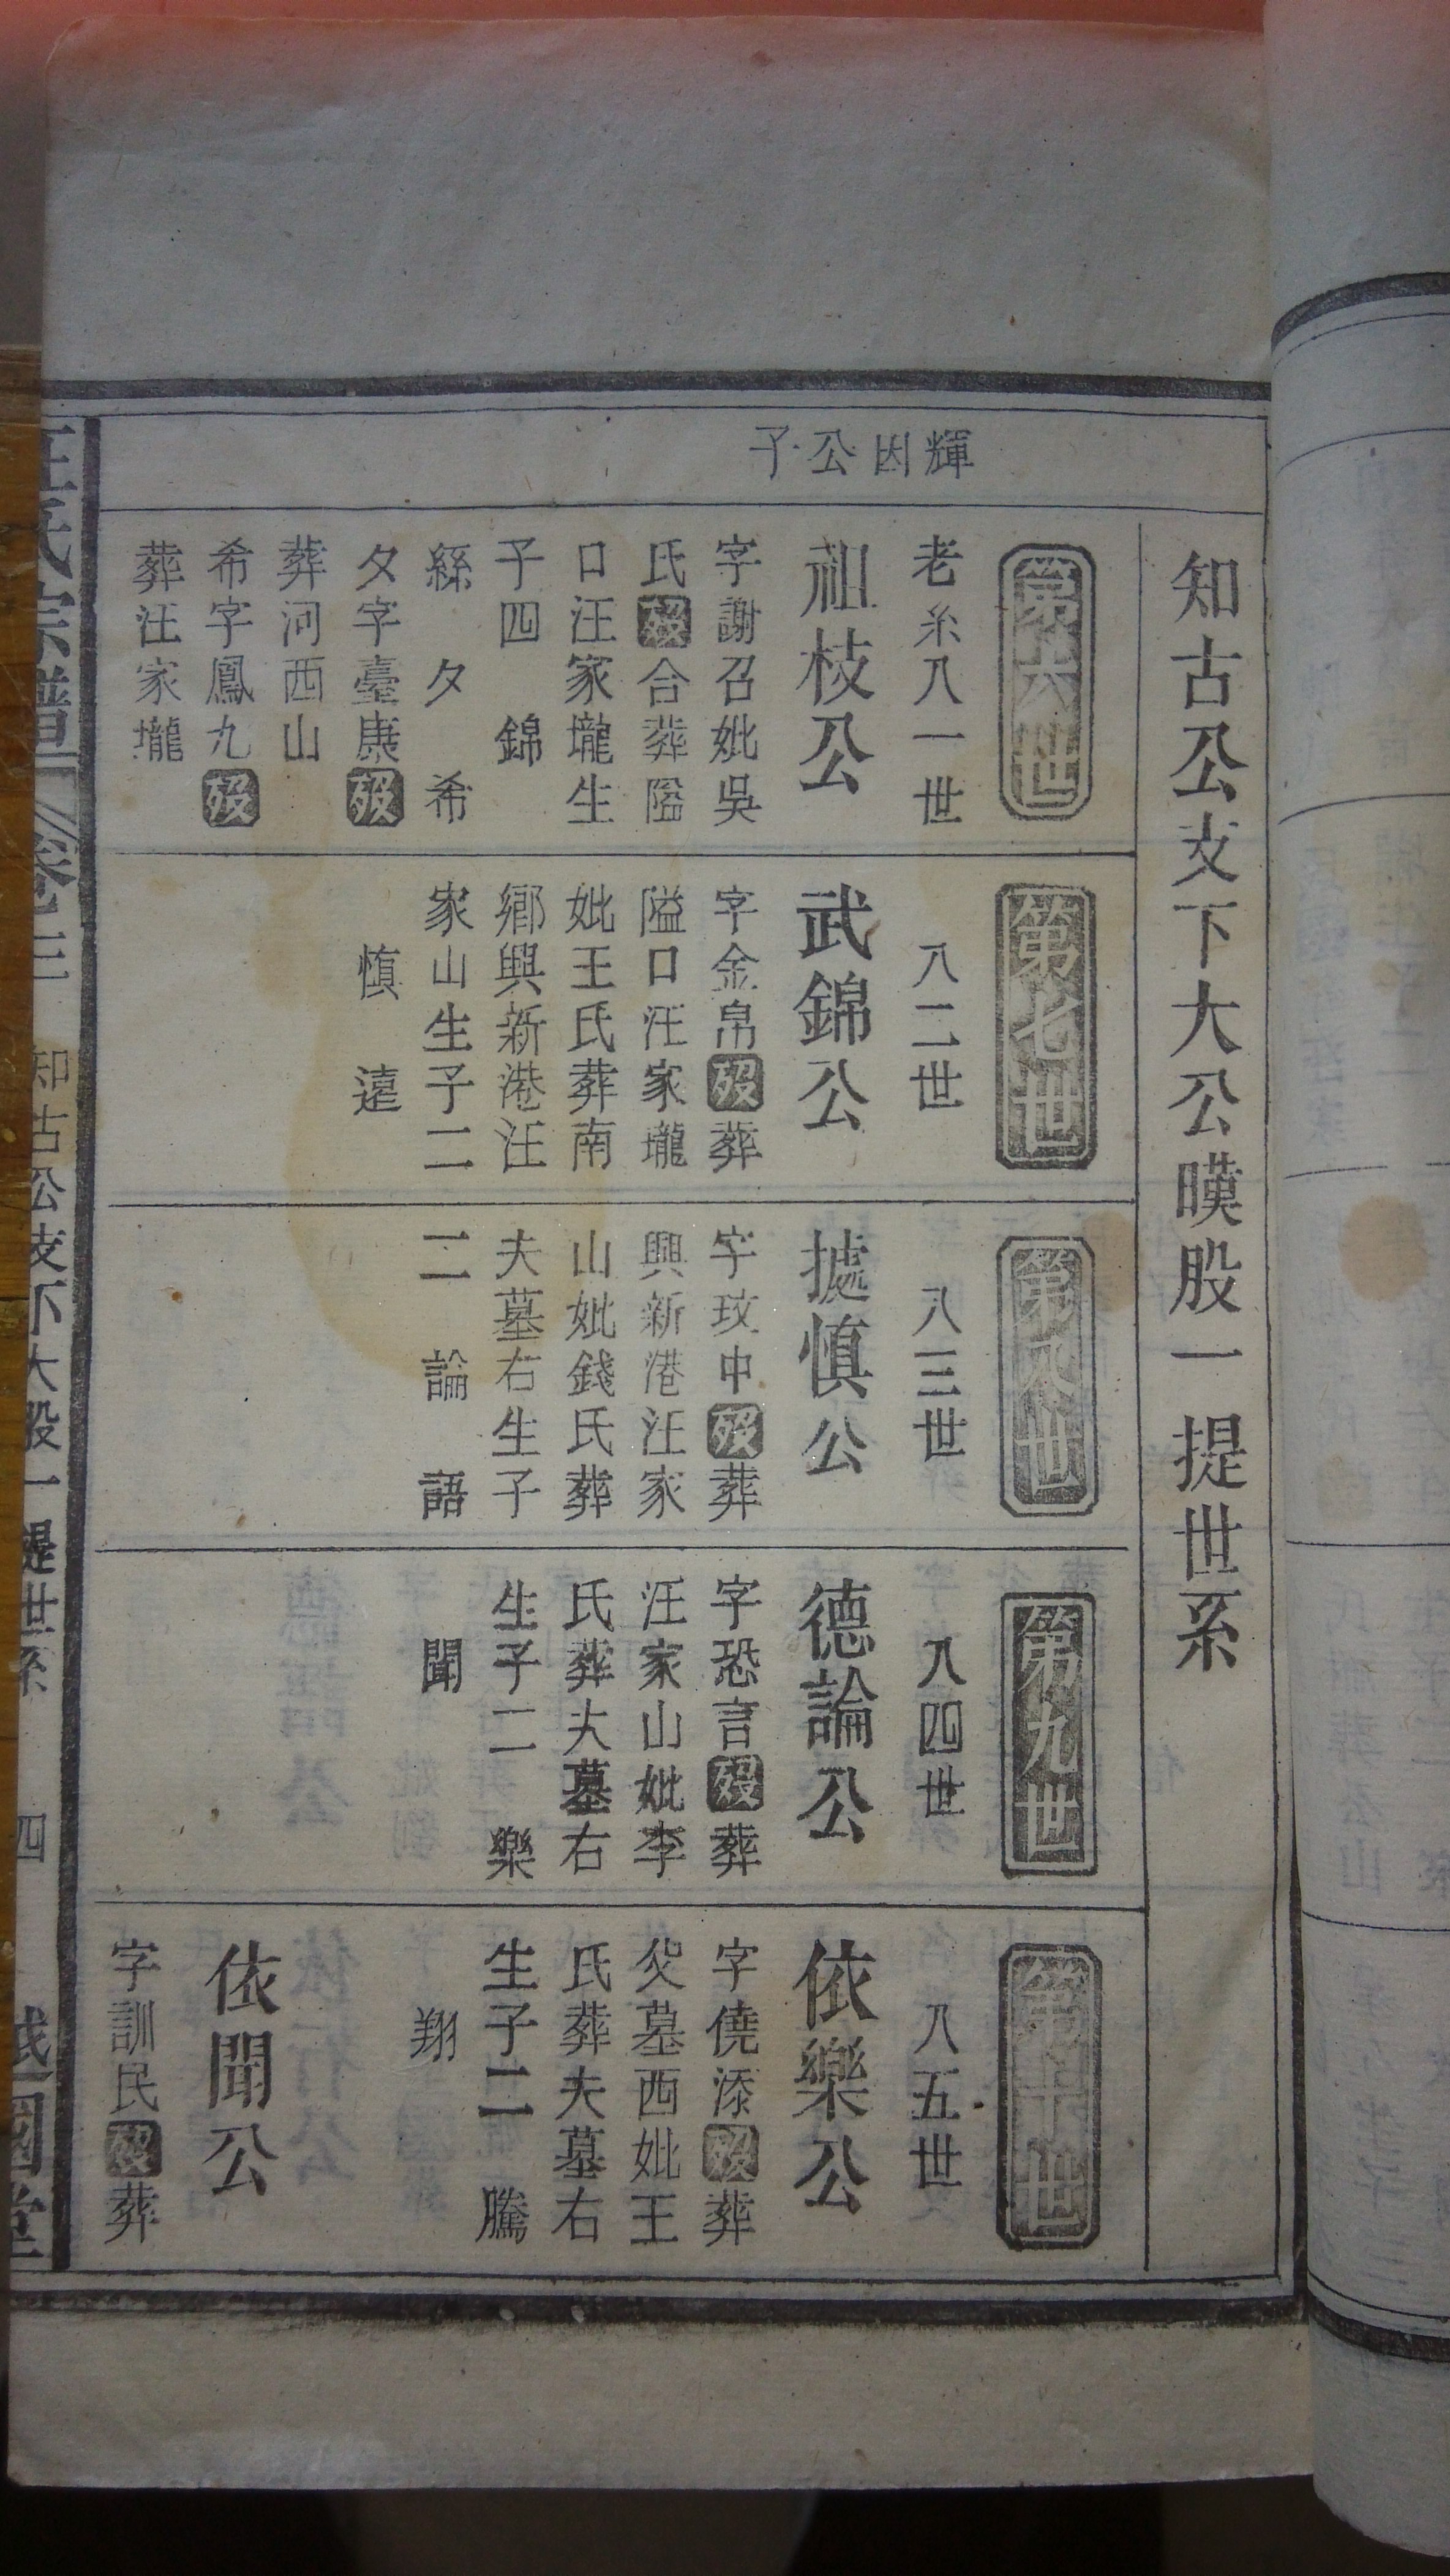 知古公支下大公暵股一提世系
輝因公子
第六世
老系八一世
祖枝公
字謝召妣吳
氏歿合葬隘
口汪家壠生
子四　錦
絲　夕　希
夕字臺庚歿
葬河西山
希字鳳九歿
葬汪家壠
第七世
八二世
武錦公
字金帛歿葬
隘口汪家壠
妣王氏葬南
鄉興新港汪
家山生子二
慎　遠
第八世
八三世
摅慎公
字玟中歿葬
興新港汪家
山妣錢氏葬
夫墓右生子
二　論　語
第九世
八四世
德論公
字恐言歿葬
汪家山妣李
氏葬夫墓右
生子二　樂
聞
第十世
八五世
依樂公
字僥添歿葬
父墓西妣王
氏葬夫墓右
生子二　騰
翔
依聞公
字訓民歿葬
汪氏宗譜　卷三　知古公支下大股一提世系　四　越國堂